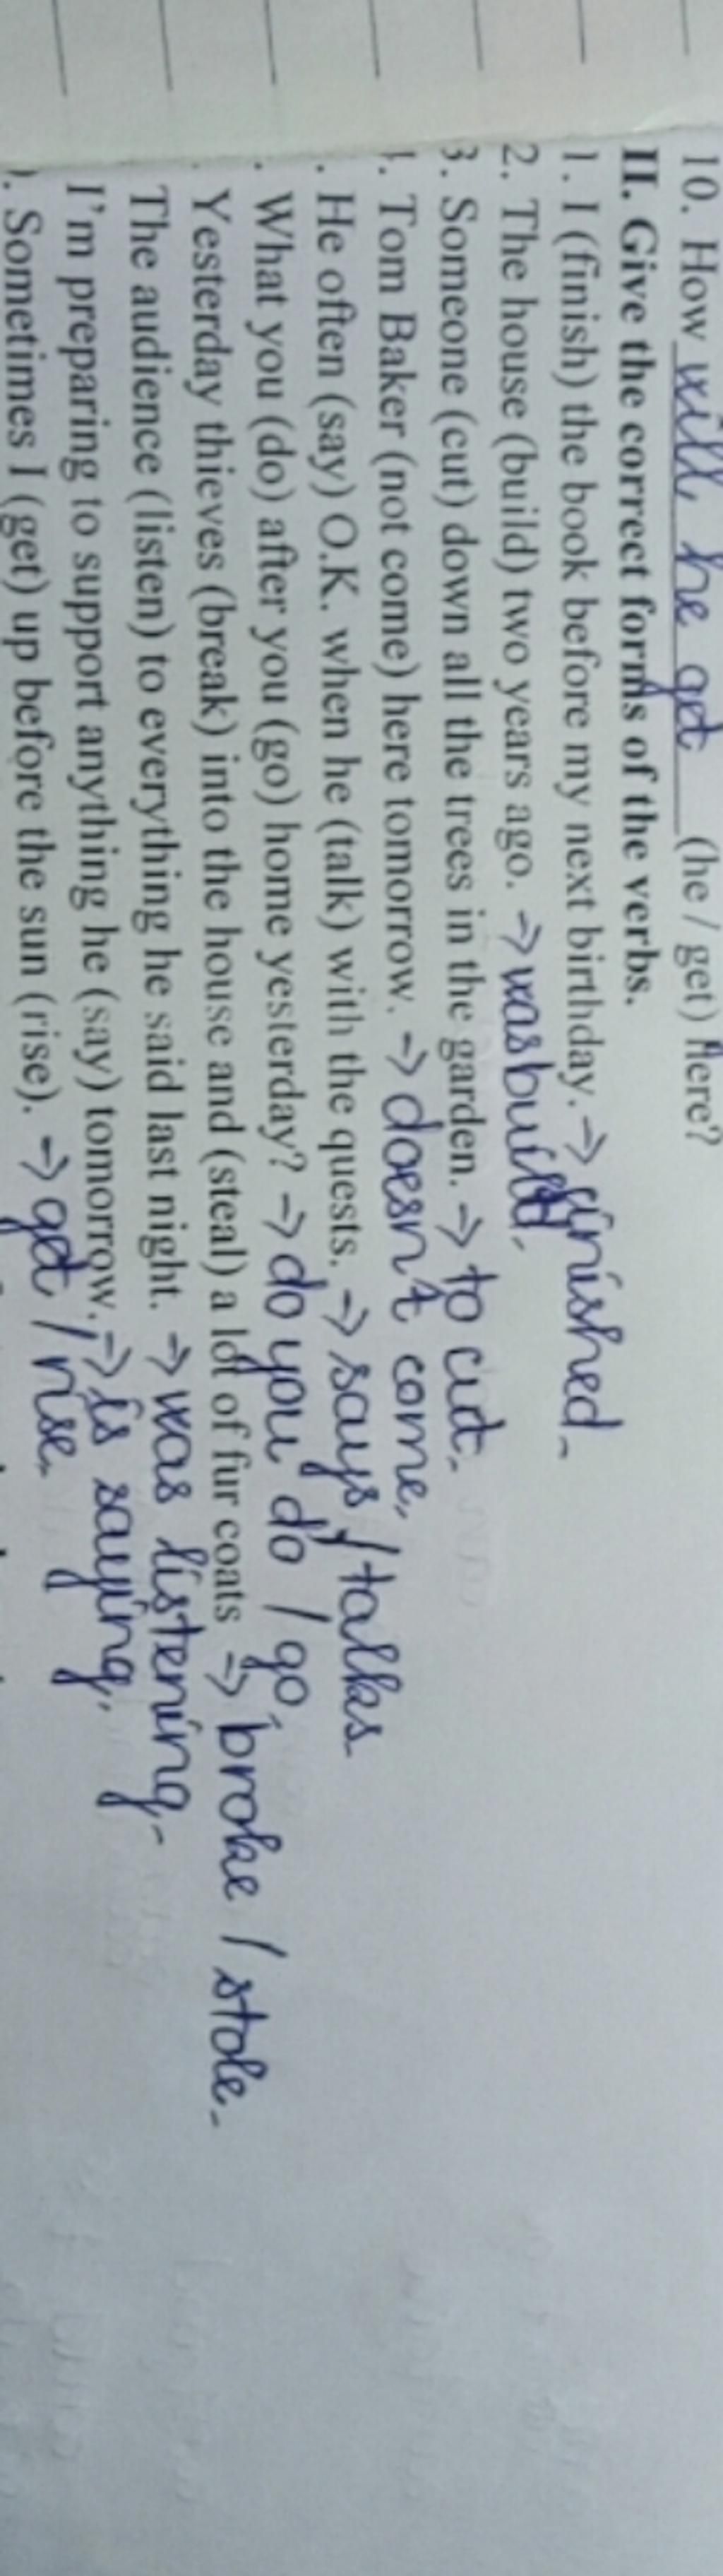 10. How will he get (he / get) here?
II. Give the correct forms of the verbs.
1. I (finish) the book before my next birthday. -> finished.
2. The house (build) two years ago. -> was build.
3. Someone (cut) down all the trees in the garden. -> to cut.
4. Tom Baker (not come) here tomorrow. -> doesn't come.
. He often (say) O.K. when he (talk) with the quests. -> says / talks
. What you (do) after you (go) home yesterday? -> do you do / go.
. Yesterday thieves (break) into the house and (steal) a lot of fur coats -> broke / stole.
The audience (listen) to everything he said last night. -> was listening.
I'm preparing to support anything he (say) tomorrow. -> is saying.
). Sometimes I (get) up before the sun (rise). -> get / rise.